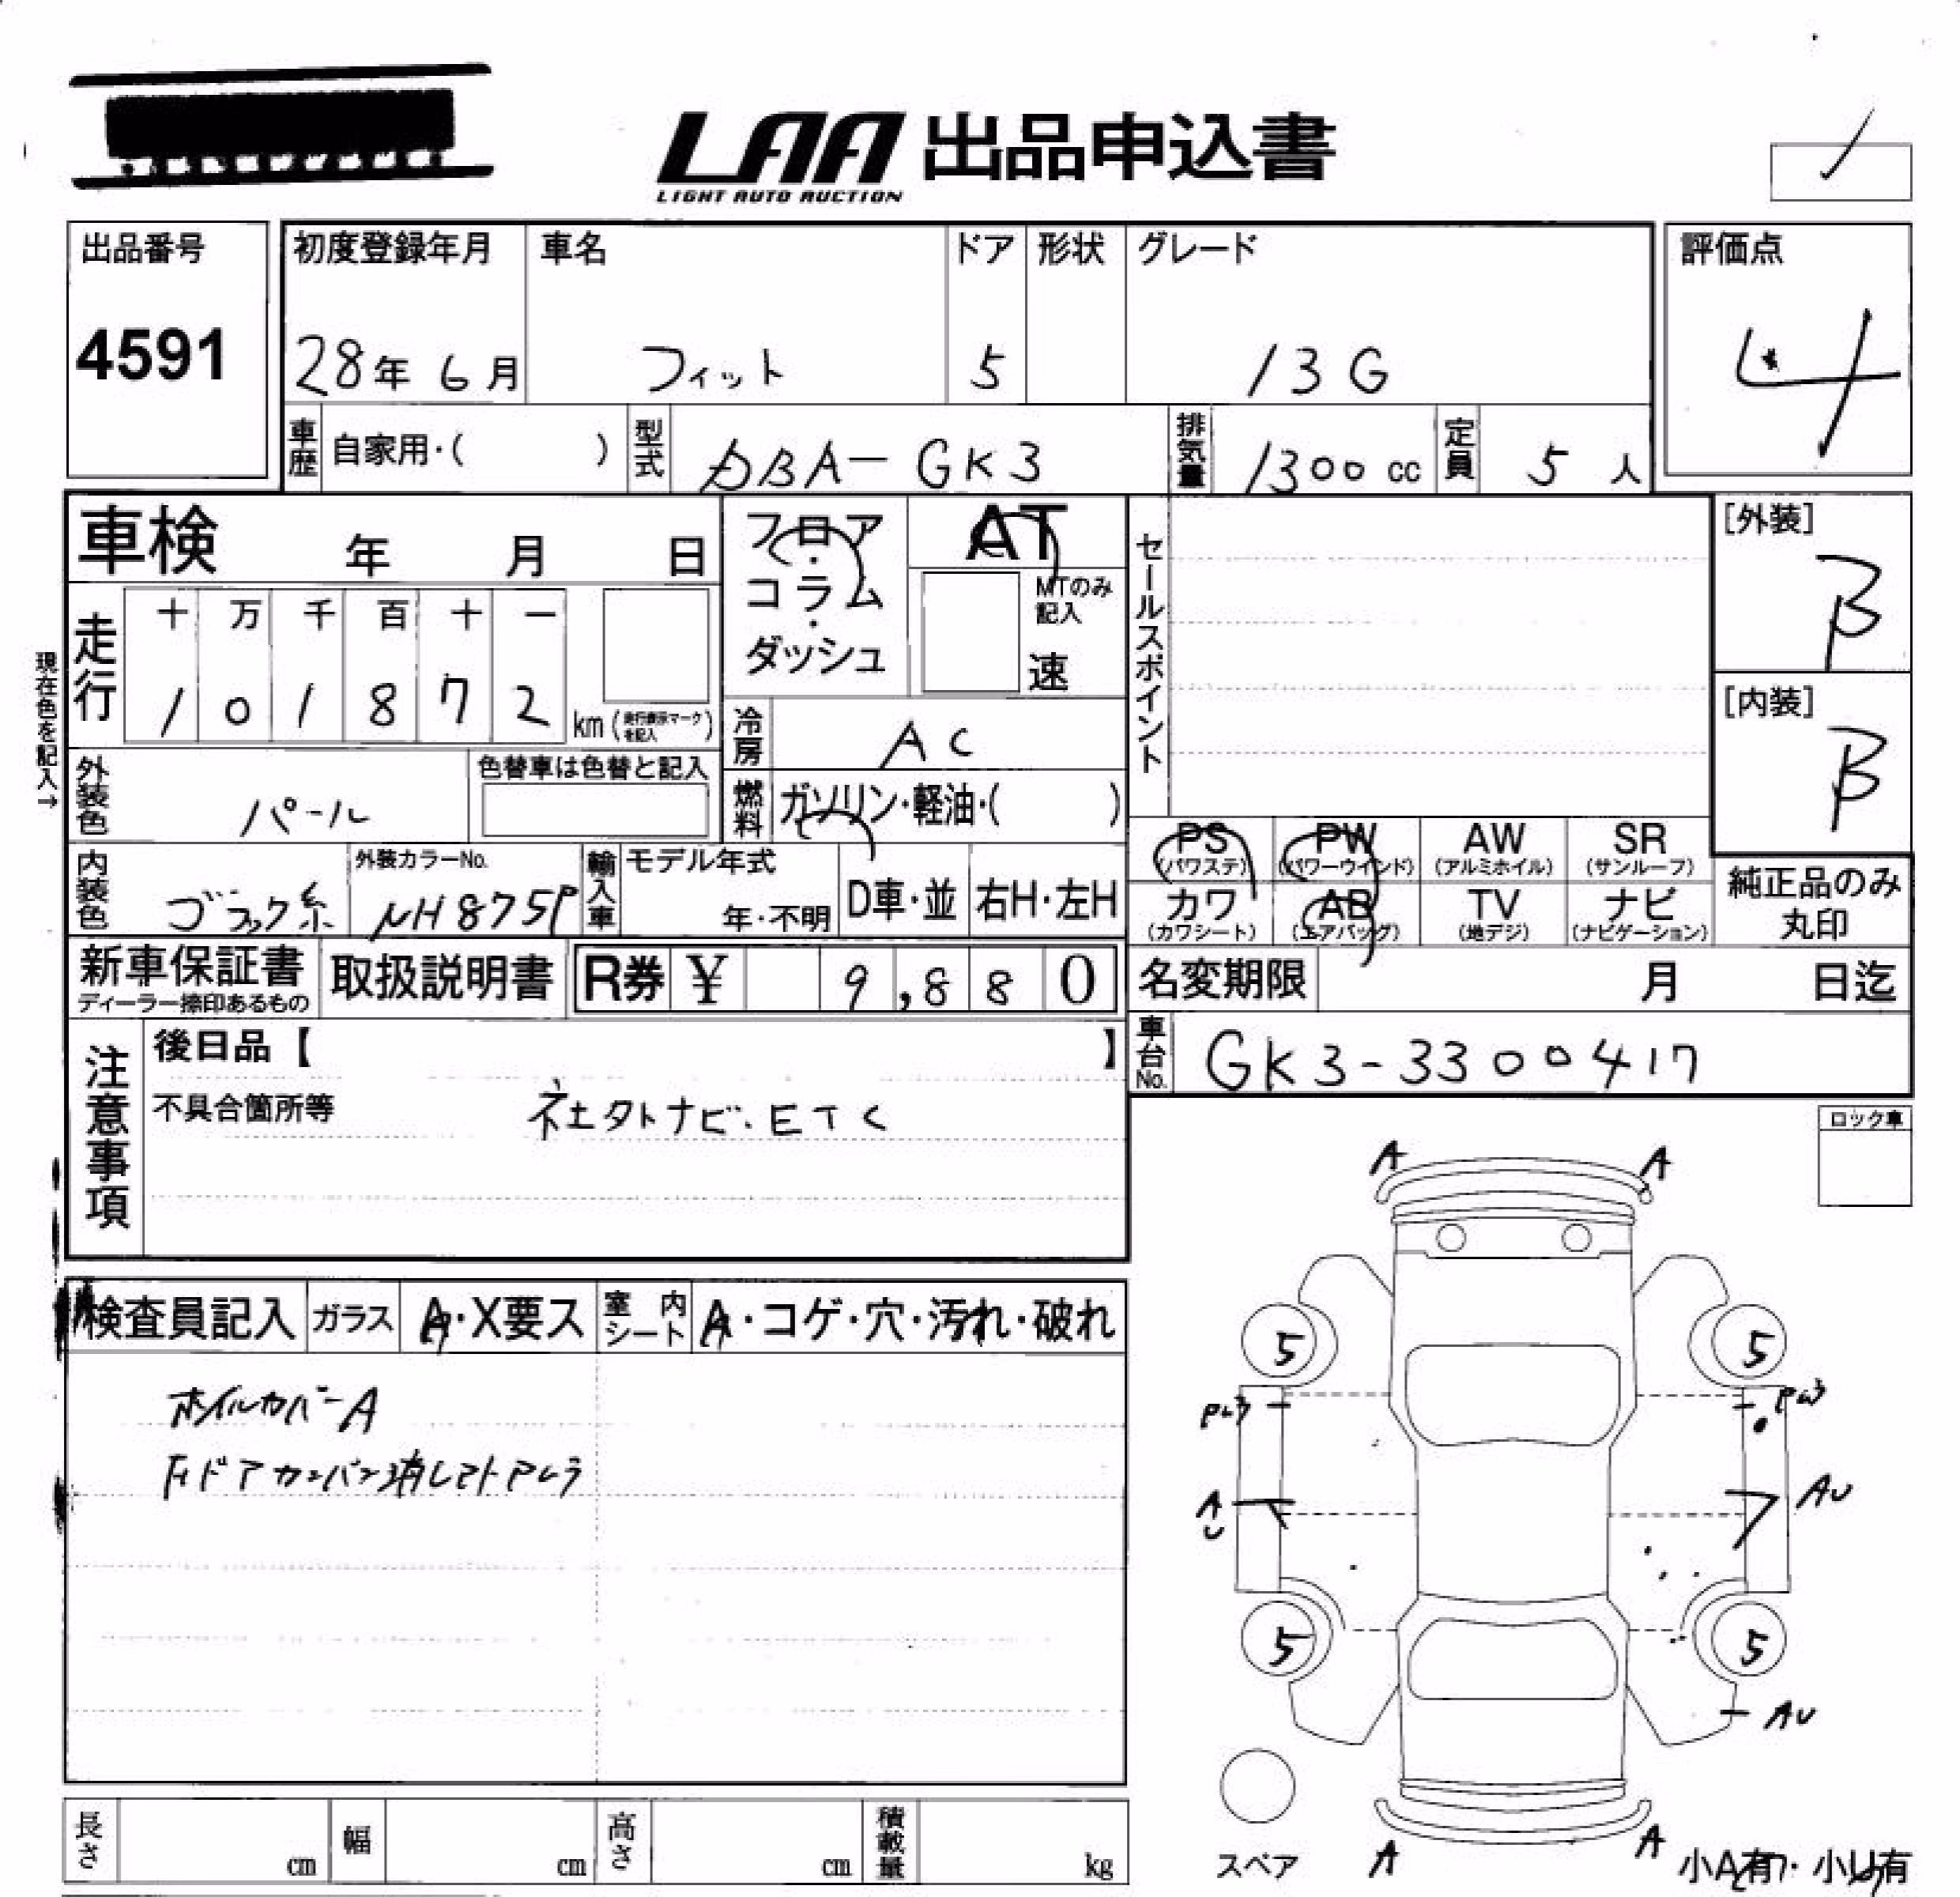 LAA 出品申込書
LIGHT AUTO AUCTION
出品番号
4591
初度登録年月
28年 6月
車名
フィット
ドア
5
形状
グレード
13G
評価点
4
車歴 自家用・( )
型式 DBA-GK3
排気量 1300 cc
定員 5 人
車検 年 月 日
フロア・コラム・ダッシュ
AT
MTのみ記入
速
セールスポイント
[外装]
B
[内装]
B
現在色を記入→
走行
十 万 千 百 十 一
1 0 1 8 7 2 km (走行表示マークを記入)
冷房 AC
外装色 パール
色替車は色替と記入
燃料 ガソリン・軽油・( )
PS (パワステ)
PW (パワーウインド)
AW (アルミホイル)
SR (サンルーフ)
カワ (カワシート)
AB (エアバッグ)
TV (地デジ)
ナビ (ナビゲーション)
純正品のみ丸印
内装色 ブラック系
外装カラーNo. NH875P
輸入車
モデル年式
年・不明
D車・並
右H・左H
新車保証書
ディーラー捺印あるもの
取扱説明書
R券 ¥ 9,880
名変期限 月 日迄
注意事項
後日品【 】
不具合箇所等 社外ナビ.ETC
車台No. GK3-3300417
ロック車
検査員記入
ガラス A・X要ス
室内シート A・コゲ・穴・汚れ・破れ
ホイルカバーA
A A
5 5
PW3 PW3
AU AU
5 5
AU
スペア
A A
小A有・小U有
長さ cm
幅 cm
高さ cm
積載量 kg